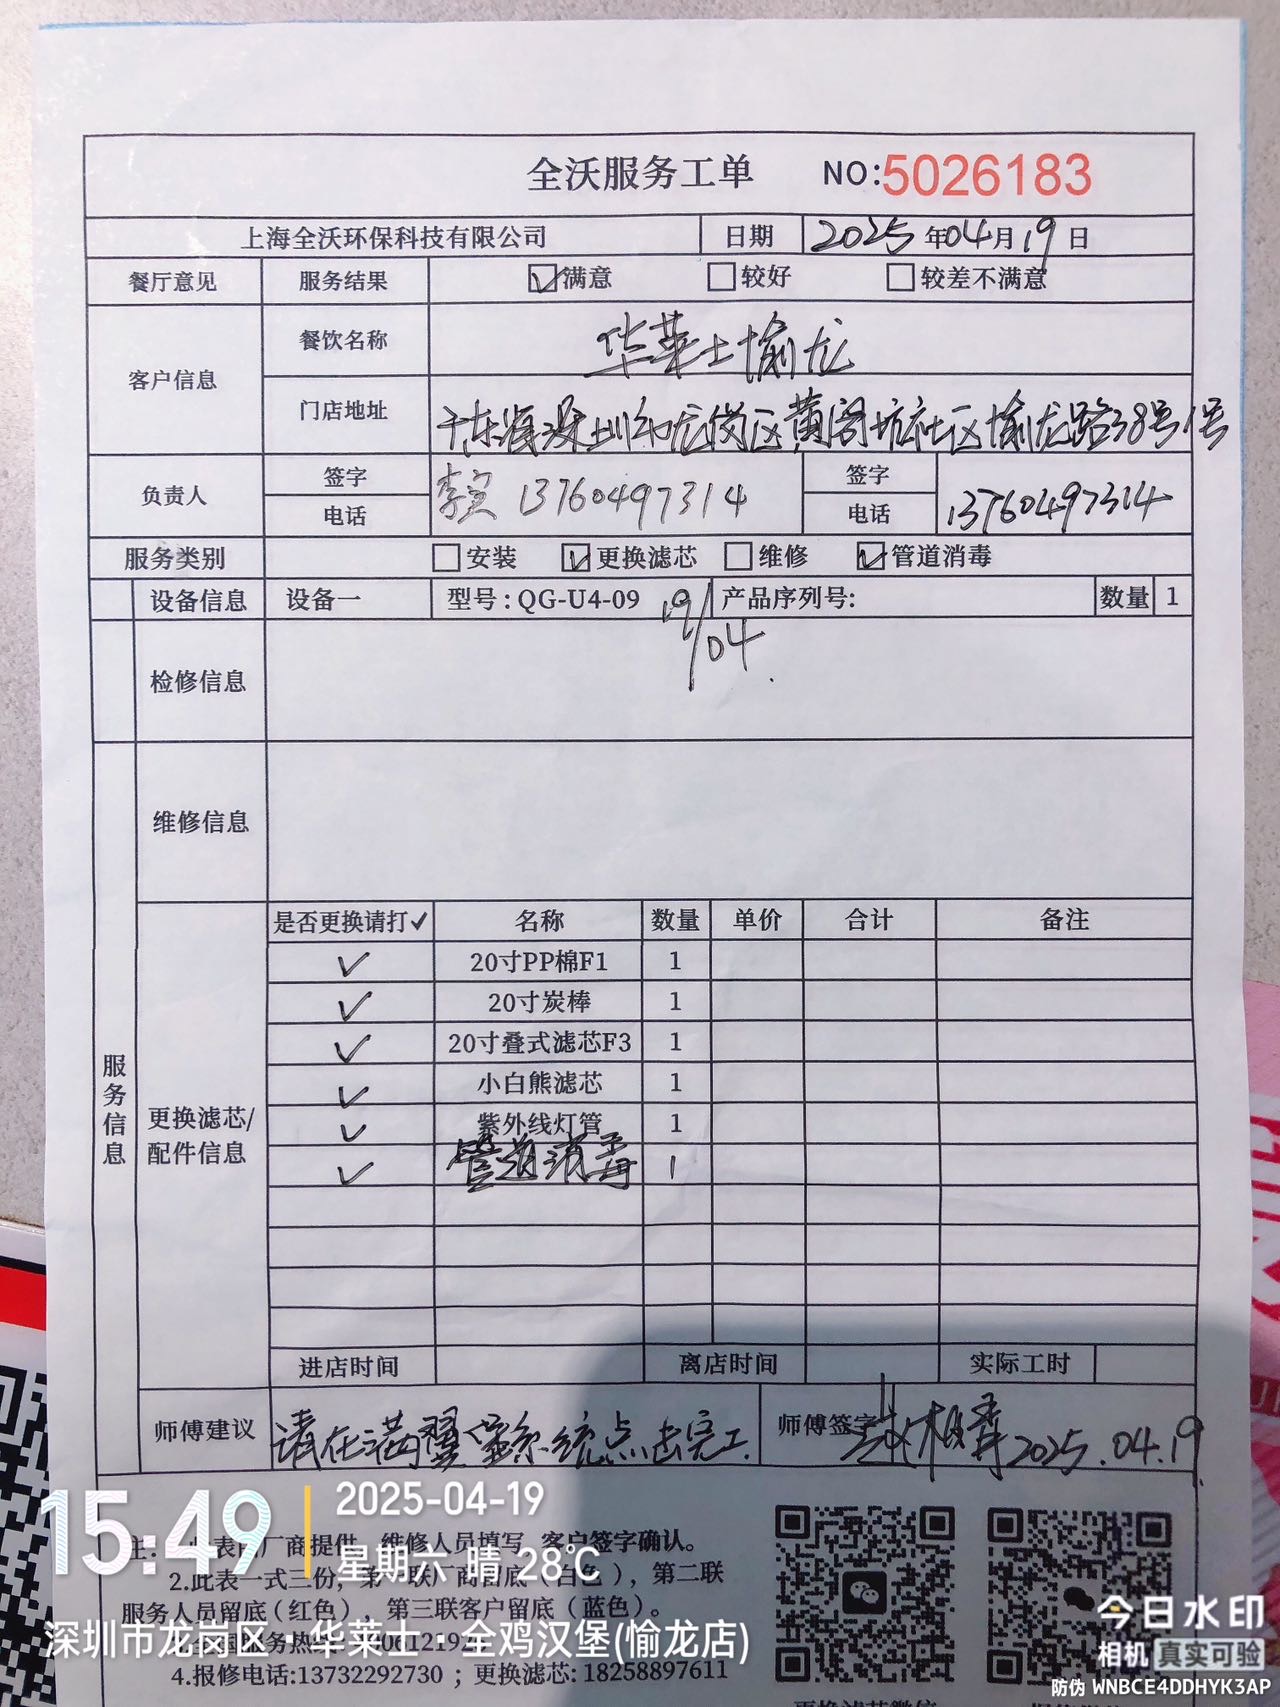 全沃服务工单 NO:5026183
上海全沃环保科技有限公司 日期 2025年04月19日
餐厅意见 服务结果 满意 较好 较差不满意
客户信息 餐饮名称 华莱士愉龙
门店地址 广东省深圳市龙岗区黄阁坑社区愉龙路38号1号
负责人 签字 电话 李 13760497314 签字 电话 13760497314
服务类别 安装 更换滤芯 维修 管道消毒
设备信息 设备一 型号:QG-U4-09 产品序列号: 数量 1
19/04.
检修信息
维修信息
服务信息
更换滤芯/配件信息
是否更换请打✓ 名称 数量 单价 合计 备注
✓ 20寸PP棉F1 1
✓ 20寸炭棒 1
✓ 20寸叠式滤芯F3 1
✓ 小白熊滤芯 1
✓ 紫外线灯管 1
✓ 管道消毒 1
进店时间 离店时间 实际工时
师傅建议 请在满翼 系统点击完工. 师傅签字 赵 2025.04.19.
注: 此表由厂商提供,维修人员填写,客户签字确认。
2.此表一式三份,第一联厂商留底(白色),第二联
服务人员留底(红色),第三联客户留底(蓝色)。
4.报修电话:13732292730 ; 更换滤芯: 18258897611
15:49
2025-04-19
星期六 晴 28℃
深圳市龙岗区·华莱士·全鸡汉堡(愉龙店)
今日水印
相机 真实可验
防伪 WNBCE4DDHYK3AP